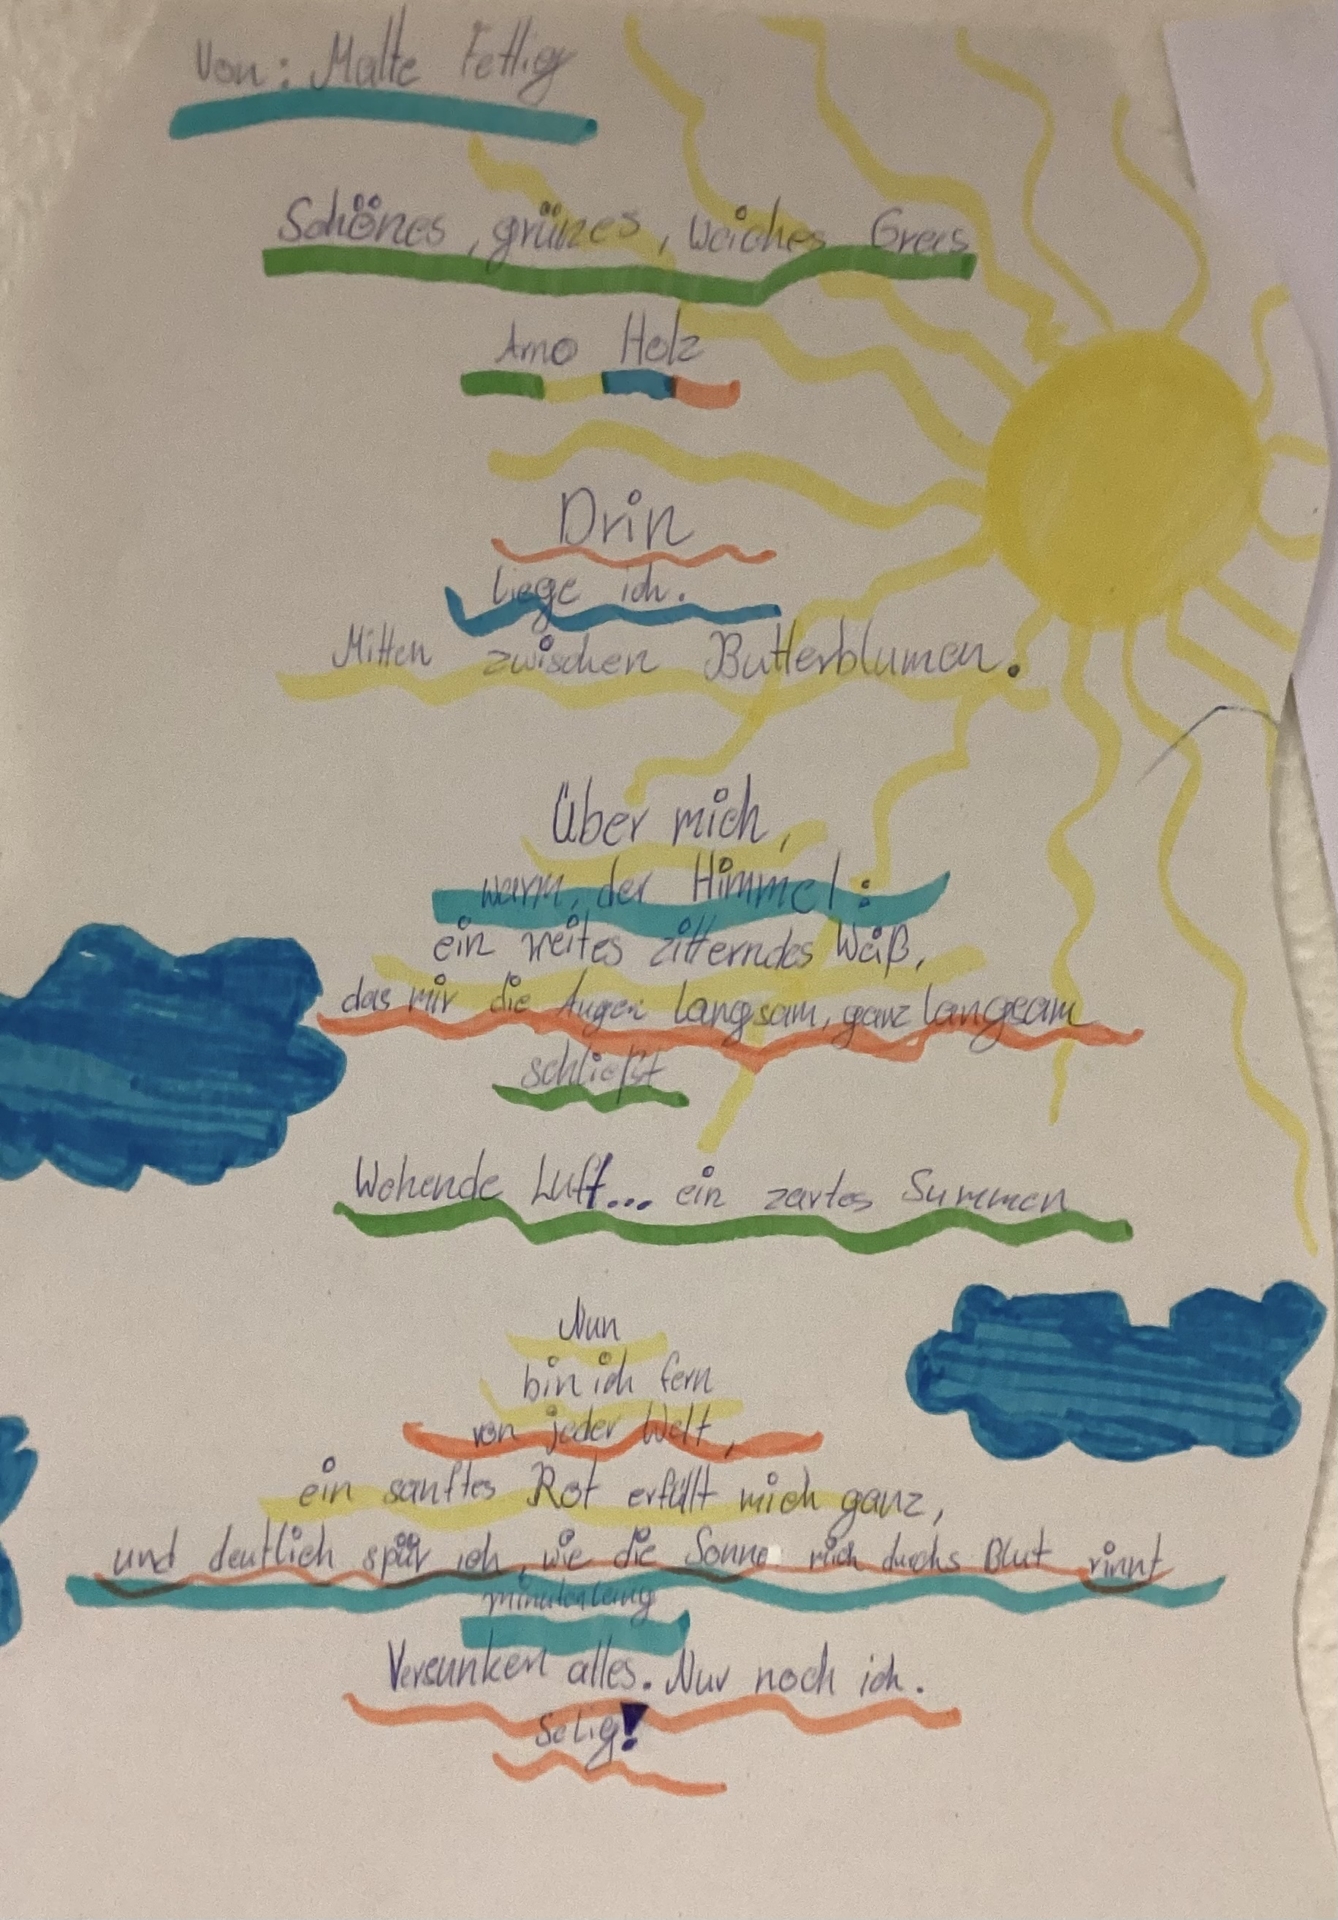 Von: Malte Fettig
Schönes, grünes, weiches Gras
Arno Holz
Drin
liege ich.
Mitten zwischen Butterblumen.
Über mich,
warm, der Himmel:
ein weites zitterndes Weiß,
das mir die Augen langsam, ganz langsam
schließt
Wehende Luft... ein zartes Summen
Nun
bin ich fern
von jeder Welt,
ein sanftes Rot erfüllt mich ganz,
und deutlich spür ich, wie die Sonne mich durchs Blut rinnt
minutenlang
Versunken alles. Nur noch ich.
Selig!